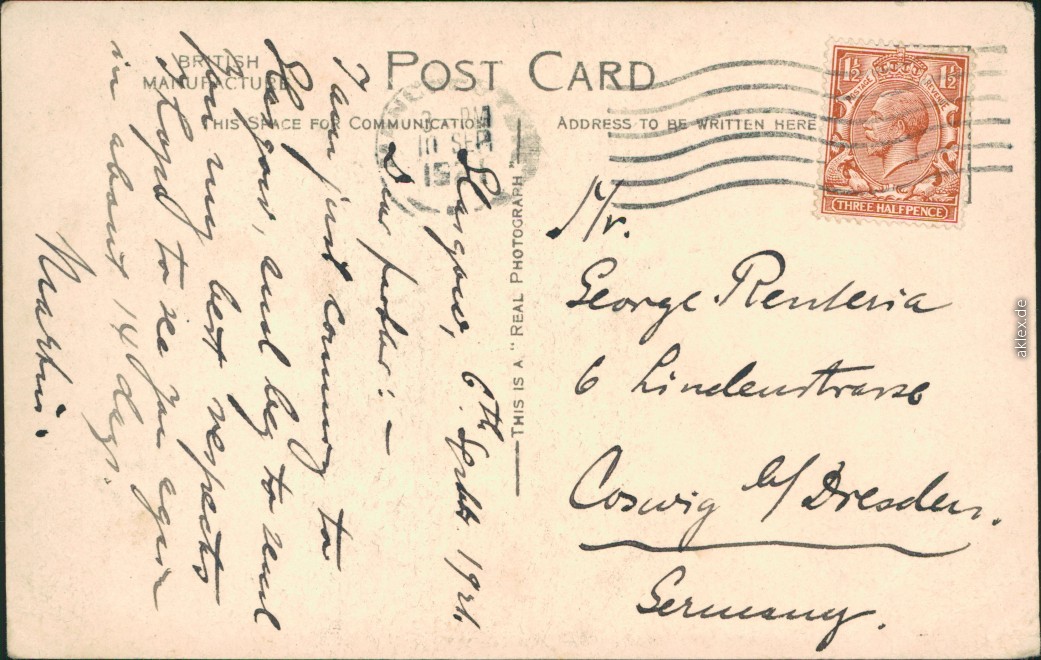 BRITISH
MANUFACTURE
POST CARD
THIS SPACE FOR COMMUNICATION
ADDRESS TO BE WRITTEN HERE
THIS IS A "REAL PHOTOGRAPH"
1½ 1½
POSTAGE REVENUE
THREE HALFPENCE
10 SEP
6th Septb. 1921.
Dear father: —
I am just coming to
and beg to send
you my best respects
Hopd to see you again
in about 14 days.
Martin.
Mr.
George Renteria
6 Lindenstrasse
Coswig b/Dresden.
Germany.
aklex.de